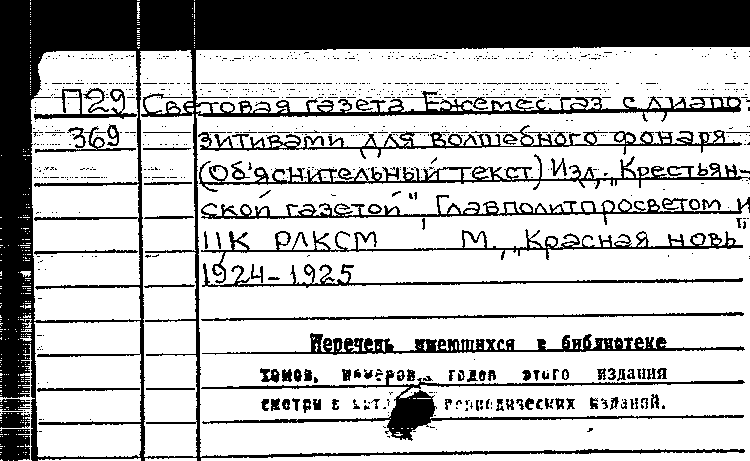 П29 Световая газета. Ежемес. газ. с диапо-
369 зитивами для волшебного фонаря.
(Об'яснительный текст) Изд. „Крестьян-
ской газетой", Главполитпросветом и
ЦК РЛКСМ М., „Красная новь"
1924-1925
Перечень имеющихся в библиотеке
томов, номеров, годов этого издания
смотри в периодических изданий.